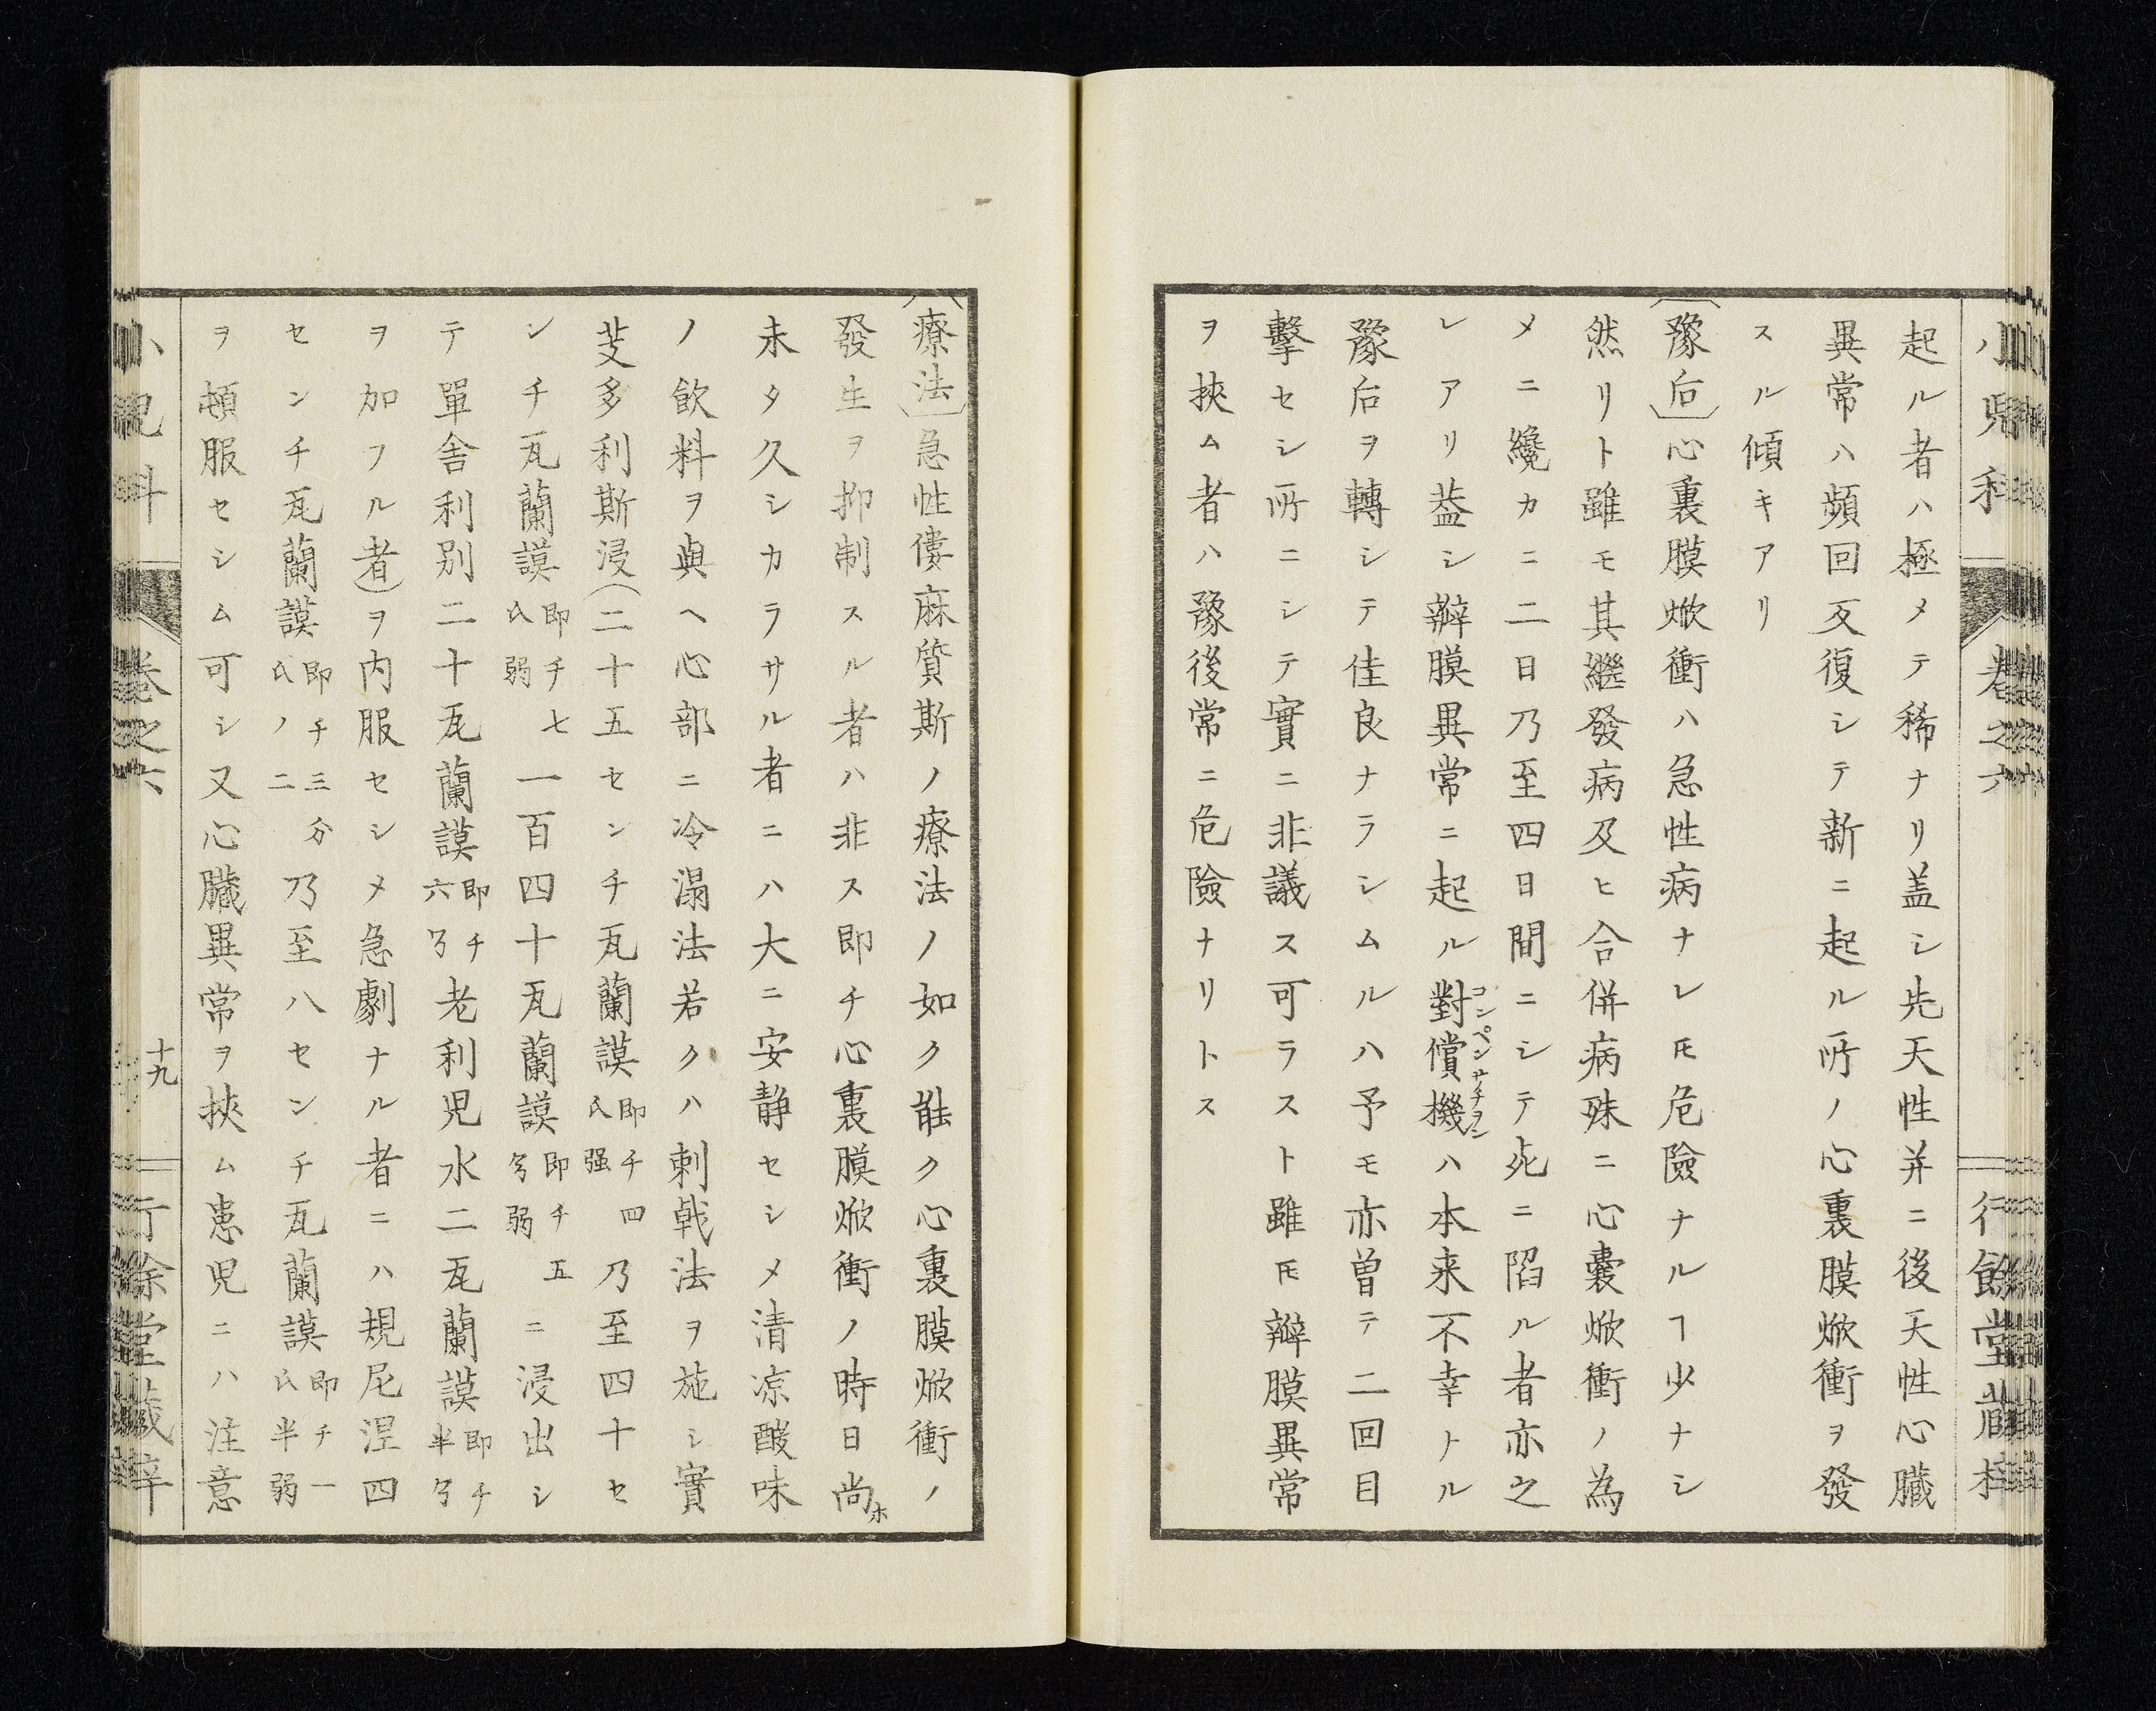 小兒科 卷之六 行餘堂藏梓
起ル者ハ極メテ稀ナリ盖シ先天性并ニ後天性心臓
異常ハ頻回反復シテ新ニ起ル所ノ心裏膜焮衝ヲ發
スル傾キアリ
〔豫后〕心裏膜焮衝ハ急性病ナレ𪜈危險ナルヿ少ナシ
然リト雖モ其継發病及ヒ合併病殊ニ心嚢焮衝ノ為
メニ纔カニ二日乃至四日間ニシテ死ニ陷ル者亦之
レアリ葢シ瓣膜異常ニ起ル對償機ハ本来不幸ナル
コンペンサチヲン
豫后ヲ轉シテ佳良ナラシムルハ予モ亦曽テ二回目
擊セシ所ニシテ實ニ非議ス可ラスト雖𪜈瓣膜異常
ヲ挾ム者ハ豫後常ニ危險ナリトス
〔療法〕急性僂麻質斯ノ療法ノ如ク能ク心裏膜焮衝ノ
發生ヲ抑制スル者ハ非ス即チ心裏膜焮衝ノ時日尚ホ
未タ久シカラサル者ニハ大ニ安静セシメ清凉酸味
ノ飲料ヲ與ヘ心部ニ冷溻法若クハ刺戟法ヲ施シ實
芰多利斯浸(二十五センチ瓦蘭謨即チ四氏强乃至四十セ
ンチ瓦蘭謨即チ七氏弱一百四十瓦蘭謨即チ五弱ニ浸出シ
テ單舎利別二十瓦蘭謨即チ六老利児水二瓦蘭謨即チ半
ヲ加フル者)ヲ内服セシメ急劇ナル者ニハ規尼涅四
センチ瓦蘭謨即チ三分氏ノ二乃至八センチ瓦蘭謨即チ一氏半弱
ヲ頓服セシム可シ又心臓異常ヲ挾ム患児ニハ注意
小兒科 卷之六 十九 行餘堂藏梓